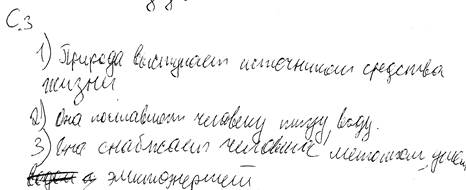 С.3
1) Природа выступает источником средства
жизни
2) Она поставляет человеку пищу, воду.
3) Она снабжает человека металлом,
электроэнергией